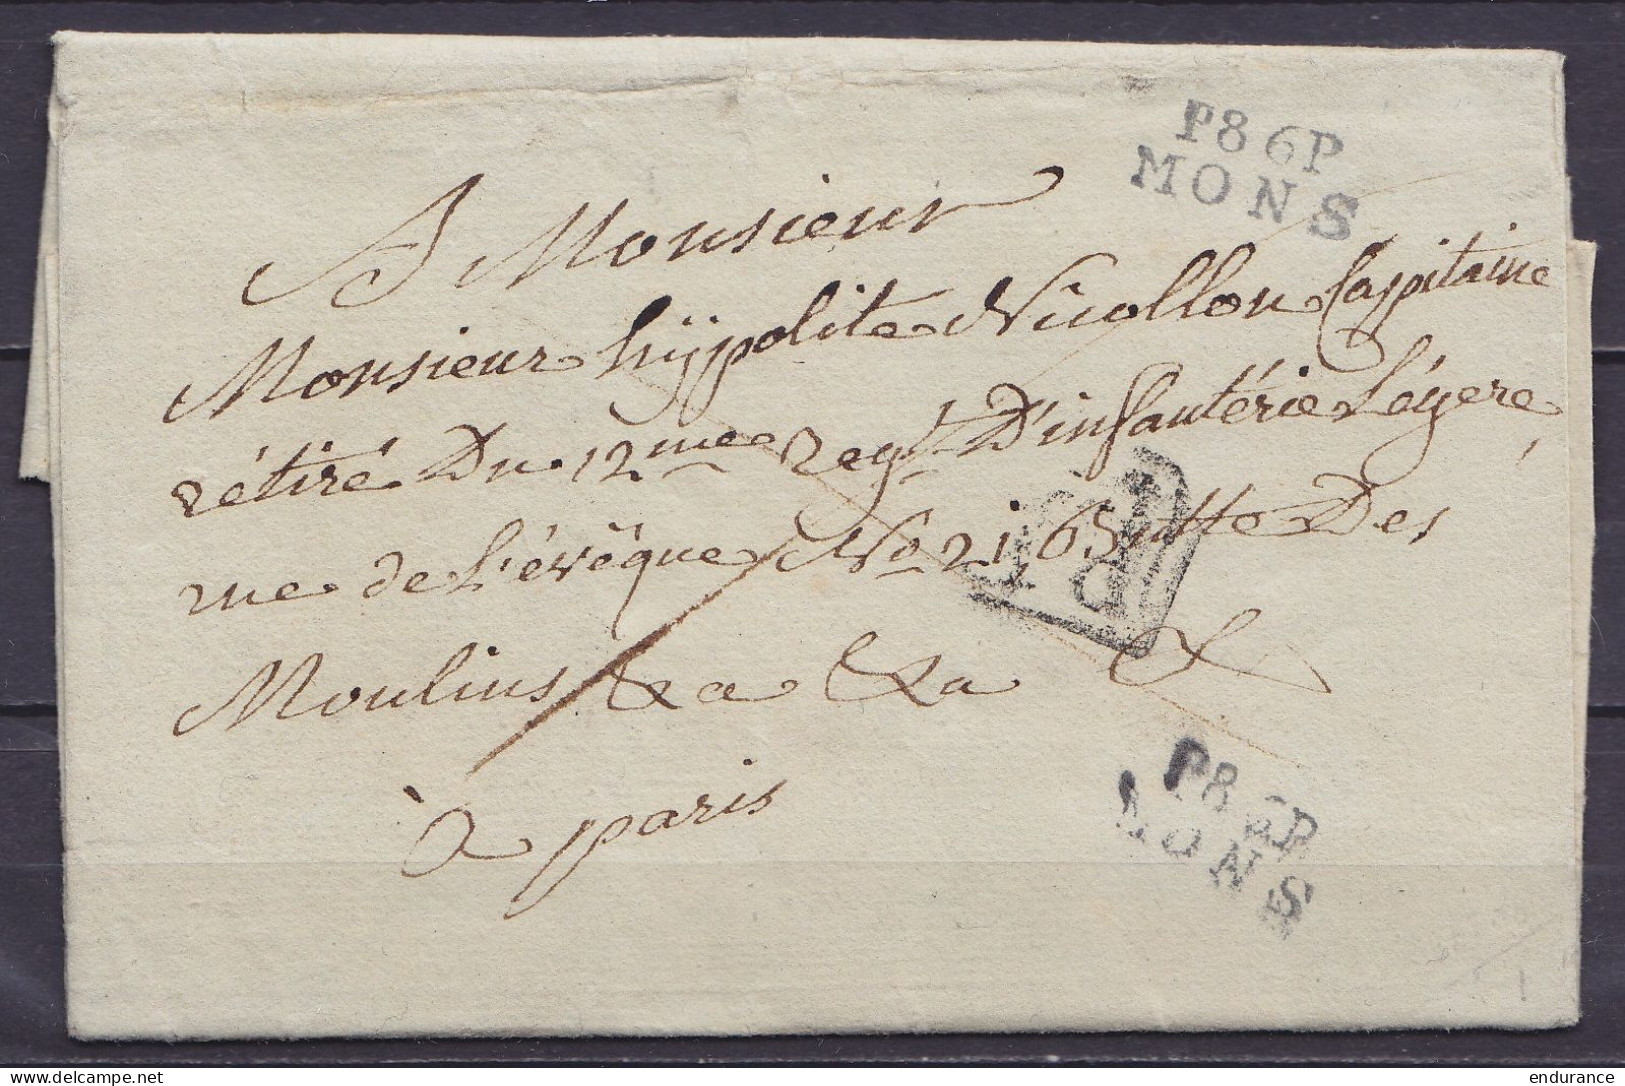 P86P
MONS
A Monsieur
Monsieur hÿppolite Nicollon Capitaine
rétiré Du 12me regt D'infantérie Légere
rue de L'évêque No 21, Butte Des
Moulins &a &a &
à paris
P86P
MONS
delcampe.net
endurance